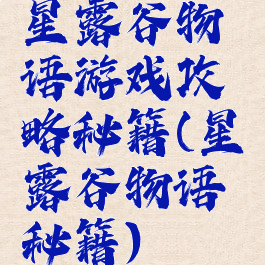 星露谷物
语游戏攻
略秘籍(星
露谷物语
秘籍)